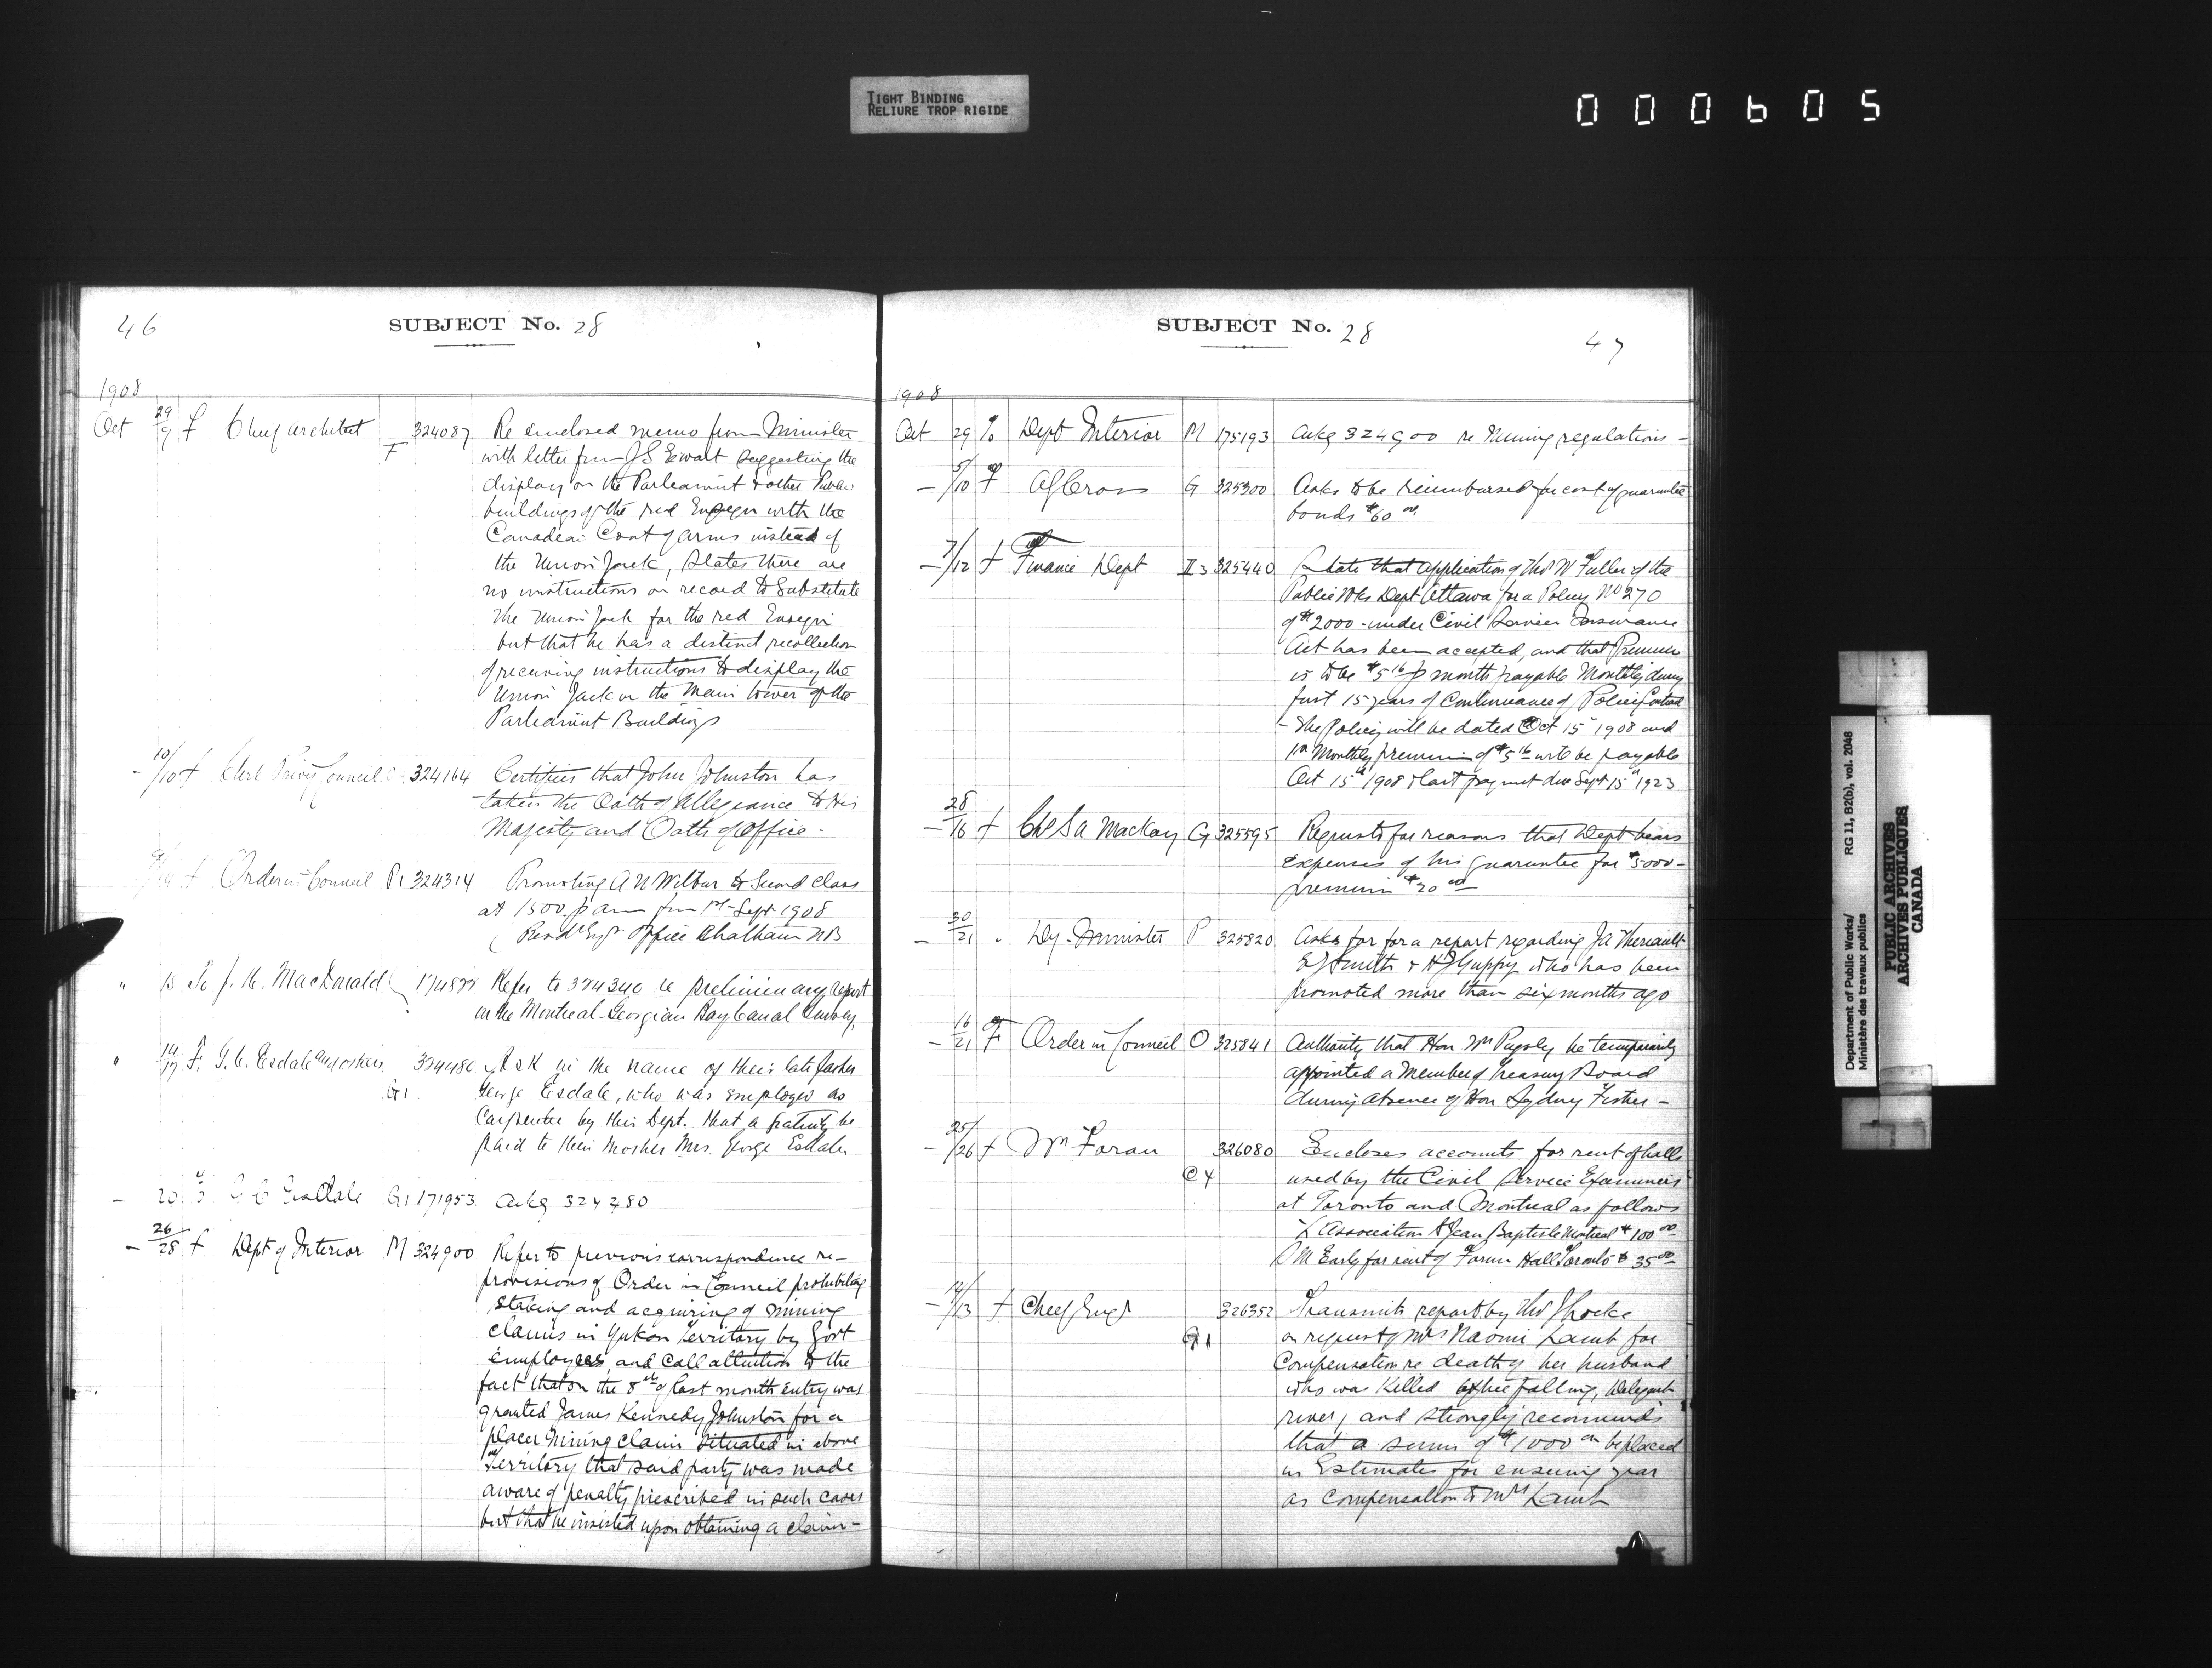 TIGHT BINDING
RELIURE TROP RIGIDE
000605
46
SUBJECT No. 28
1908
Oct 29/9 F Chief architect F 324087 Re enclosed memo from Minister
with letter from J S Ewart suggesting the
display on the Parliamint & other Public
buildings of the red Ensign with the
Canadian Coat of arms instead of
the Union Jack, States there are
no instructions on record to Substitute
the Union Jack for the red Ensign
but that he has a distinct recollection
of receiving instructions to display the
Union Jack on the Main tower of the
Parliamint Buildings
- 10/10 f Clerk Privy Council 324164 Certifies that John Johnston has
taken the Oath of Allegiance to His
Majesty and Oath of Office -
f Order in Council P1 324314 Promoting A N Wilbur to Second Class
at 1500 p ann from 1st Sept 1908
Resdt Engr Office Chatham NB
" 15 To J. H. MacDonald 174899 Refer to 324340 re preliminary report
on the Montreal-Georgian Bay Canal Survey,
" 14/17 F. G. C. Esdale and others G1 324480 Ask in the name of their late father
George Esdale, who was employed as
Carpenter by this Dept. that a gratuity be
paid to their Mother Mrs. George Esdale.
- 20 G C Esdale G1 171953 Ackg 324280
- 26/28 f Dept of Interior M 324900 Refer to previous correspondence re-
provisions of Order in Council prohibiting
Staking and acquiring of mining
claims in Yukon Territory by Govt
Employees, and call attention to the
fact that on the 8th of last month entry was
granted James Kennedy Johnston for a
placer Mining Claim situated in above
Territory that said party was made
aware of penalty prescribed in such cases
but that he insisted upon obtaining a claim -
SUBJECT No. 28
47
1908
Oct 29 To Dept Interior M 175193 Ackg 324900 re Mining regulations -
- 5/10 F A J Cross G 325300 Asks to be reimbursed for cost of guarantee
bonds $60 00.
- 7/12 f Finance Dept I3 325440 State that application of Thos W Fuller of the
Public Wks Dept Ottawa for a Policy No 270
of $2000 - under Civil Service Insurance
Act has been accepted, and that Premium
is to be $5 16 p month payable Monthly during
first 15 years of Continuance of Policy Contract
- The Policy will be dated Oct 15 1908 and
1st Monthly premium of $5 16 will be payable
Oct 15th 1908 & last paymt due Sept 15th 1923
- 28/16 f Chs S A Mackay G 325595 Requests for reasons that Dept bears
Expenses of his guarantee for $5000 -
premium $20 00
- 30/21 " Dy - Minister P 325820 Asks for for a report regarding J A Theriault
E J Smith & H J Guppy who has been
promoted more than six months ago
- 16/21 F Order in Council O 325841 Authority that Hon Wm Pugsly be temporarily
appointed a Member of Treasury Board
during absence of Hon Sydney Fisher -
- 25/26 f Wm Foran C4 326080 Encloses accounts for rent of halls
used by the Civil Service Examiners
at Toronto and Montreal as follows
L Association St Jean Baptiste Montreal $100 00
S M Early for rent of Forum Hall Toronto $35 00
- 12/13 f Chief Engr G1 326352 Transmits report by Thos Shocke
on request of Mrs Naomi Lamb for
Compensation re death of her husband
who was killed by tree falling,
river, and strongly recommends
that a sum of $1000 00 be placed
in Estimates for ensuing year
as compensation to Mrs Lamb
Department of Public Works/
Ministère des travaux publics
RG 11, B2(b), vol. 2048
PUBLIC ARCHIVES
ARCHIVES PUBLIQUES
CANADA